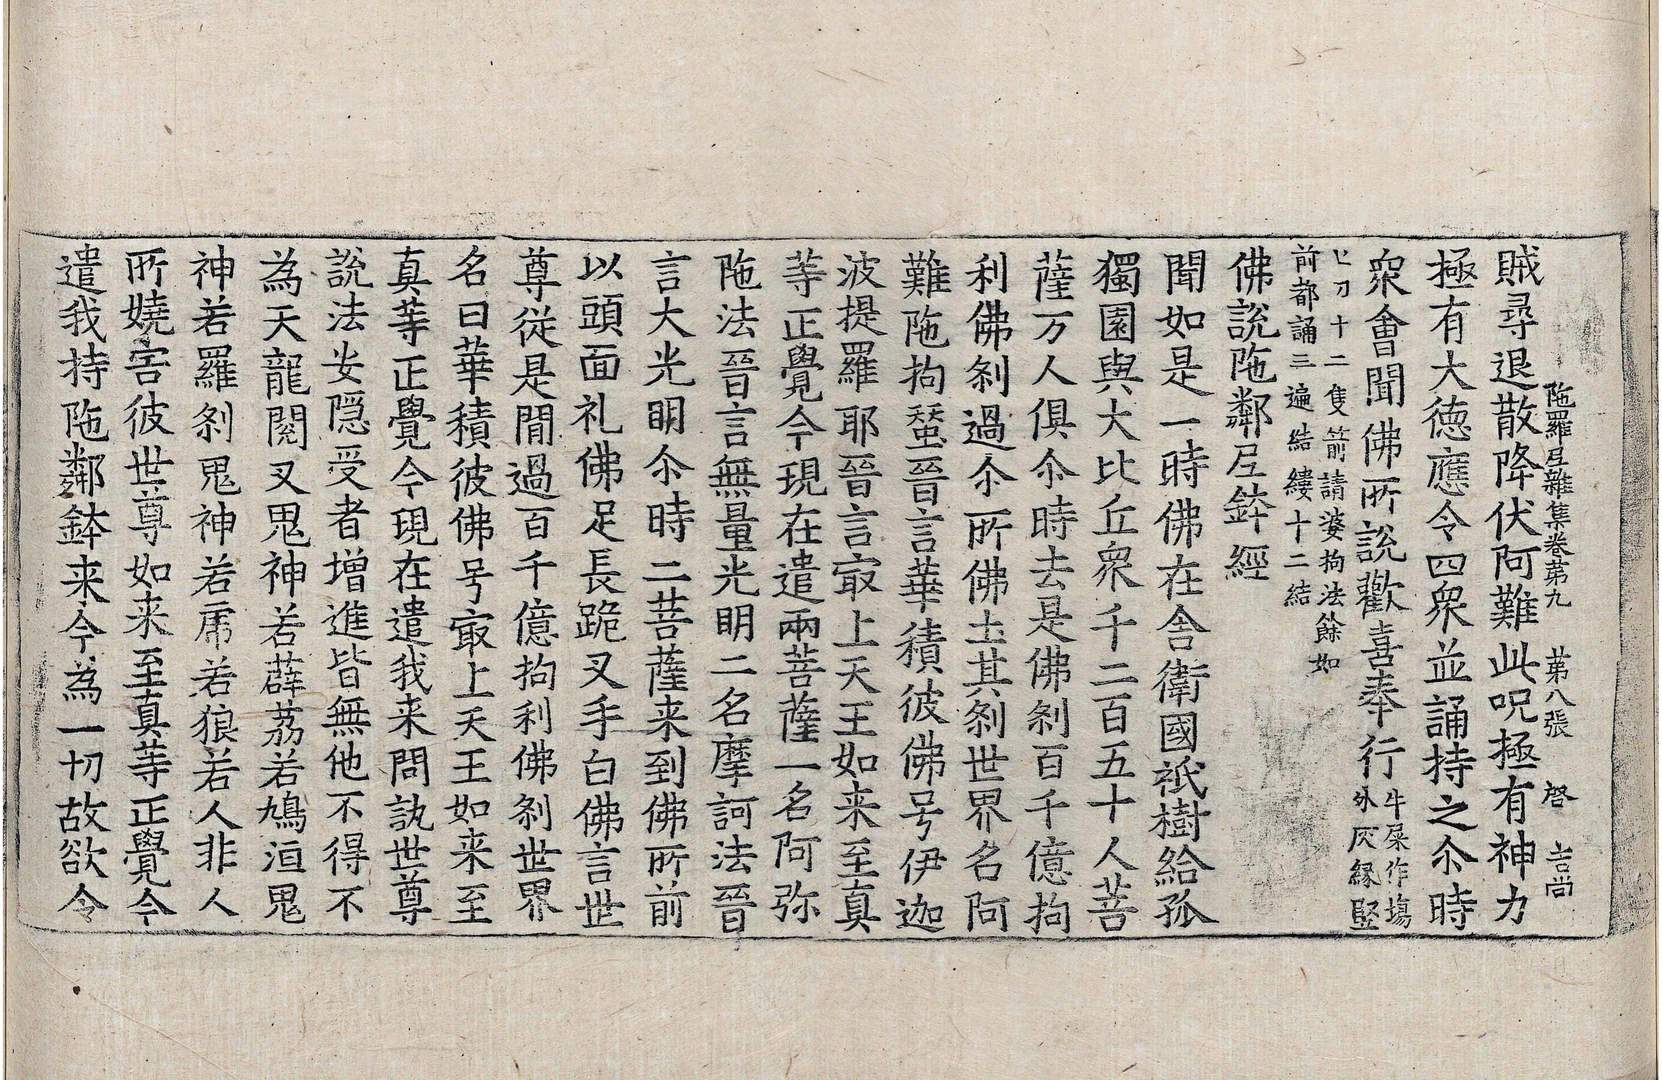 陁羅尼雜集卷苐九　苐八張　啓　吉尚
賊尋退散降伏阿難此呪極有神力
極有大德應令四衆並誦持之尒時
衆會聞佛所說歡喜奉行
牛屎作塲
外灰緣竪
七刀十二隻箭請婆拘法餘如
前都誦三遍結縷十二結
佛說陁鄰尼鉢經
聞如是一時佛在舍衛國祇樹給孤
獨園與大比丘衆千二百五十人菩
薩万人俱尒時去是佛刹百千億拘
利佛刹過尒所佛土其刹世界名阿
難陁拘蝅晉言華積彼佛号伊迦
波提羅耶晉言㝡上天王如来至真
等正覺今現在遣兩菩薩一名阿弥
陁法晉言無量光明二名摩訶法晉
言大光明尒時二菩薩来到佛所前
以頭面礼佛足長跪叉手白佛言世
尊從是間過百千億拘利佛刹世界
名曰華積彼佛号㝡上天王如来至
真等正覺今現在遣我来問訊世尊
說法安隱受者增進皆無他不得不
為天龍閱叉鬼神若薜荔若鳩洹鬼
神若羅刹鬼神若虎若狼若人非人
所嬈害彼世尊如来至真等正覺今
遣我持陁鄰鉢来今為一切故欲令